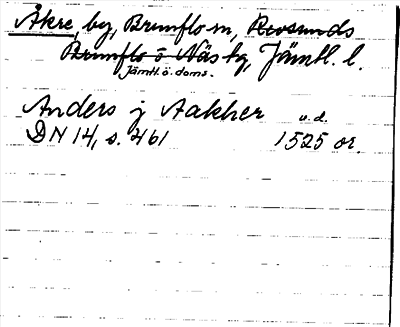 Åkre, by, Brunflo sn, Revsunds
Brunflo o Näs tg, Jämtl. l.
Jämtl. ö. doms.
Anders j Aakher u.d.
DN 14, s. 461 1525 or.